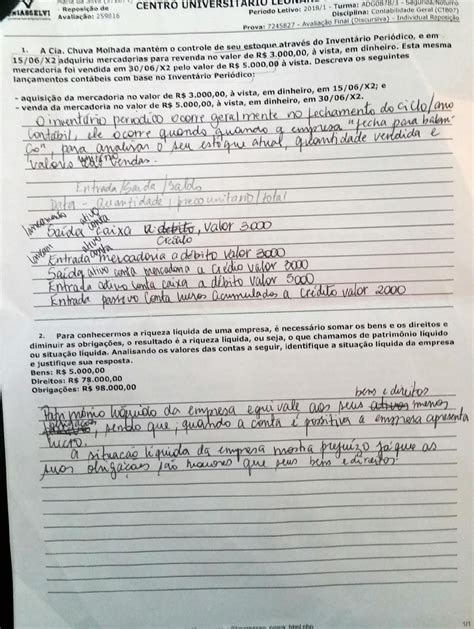 CENTRO UNIVERSITÁRIO LEONAR
- Reposição de
Avaliação: 259816
Período Letivo: 2018/1 - Turma: ADG0878/3 - Segunda/Noturno
Disciplina: Contabilidade Geral (CTB07)
Prova: 7245827 - Avaliação Final (Discursiva) - Individual Reposição
1. A Cia. Chuva Molhada mantém o controle de seu estoque através do Inventário Periódico, e em
15/06/X2 adquiriu mercadorias para revenda no valor de R$ 3.000,00, à vista, em dinheiro. Esta mesma
mercadoria foi vendida em 30/06/X2 pelo valor de R$ 5.000,00 à vista. Descreva os seguintes
lançamentos contábeis com base no Inventário Periódico:
- aquisição da mercadoria no valor de R$ 3.000,00, à vista, em dinheiro, em 15/06/X2; e
- venda da mercadoria no valor de R$ 5.000,00, à vista, em dinheiro, em 30/06/X2.
O inventário periodico ocorre geralmente no fechamento do ciclo/ano
contabil, ele ocorre quando quando a empresa "fecha para balan
ço" para analisar o seu estoque atual, quantidade vendida e
valores das vendas.
Entrada/Saída/Saldo
Data - Quantidade/preço unitario/total
lançamento ativo conta
Saída caixa a debito, valor 3000
Crédito
ativo conta
Entrada mercadoria a débito valor 3000
Saída ativo conta mercadoria a Crédio valor 3000
Entrada ativo conta caixa a débito valor 5000
Entrada passivo Conta lucros Acumulados a Crédito valor 2000
2. Para conhecermos a riqueza líquida de uma empresa, é necessário somar os bens e os direitos e
diminuir as obrigações, o resultado é a riqueza líquida, ou seja, o que chamamos de patrimônio líquido
ou situação líquida. Analisando os valores das contas a seguir, identifique a situação líquida da empresa
e justifique sua resposta.
Bens: R$ 5.000,00
Direitos: R$ 78.000,00
Obrigações: R$ 98.000,00
bens e direitos
Patrimônio líquido da empresa equivale aos seus ativos menos
, sendo que, quando a conta é positiva a empresa apresenta
lucro.
A situacao líquida da empresa mostra prejuizo já que as
suas obrigaçães são maiores que seus bem e direitos.
1/1